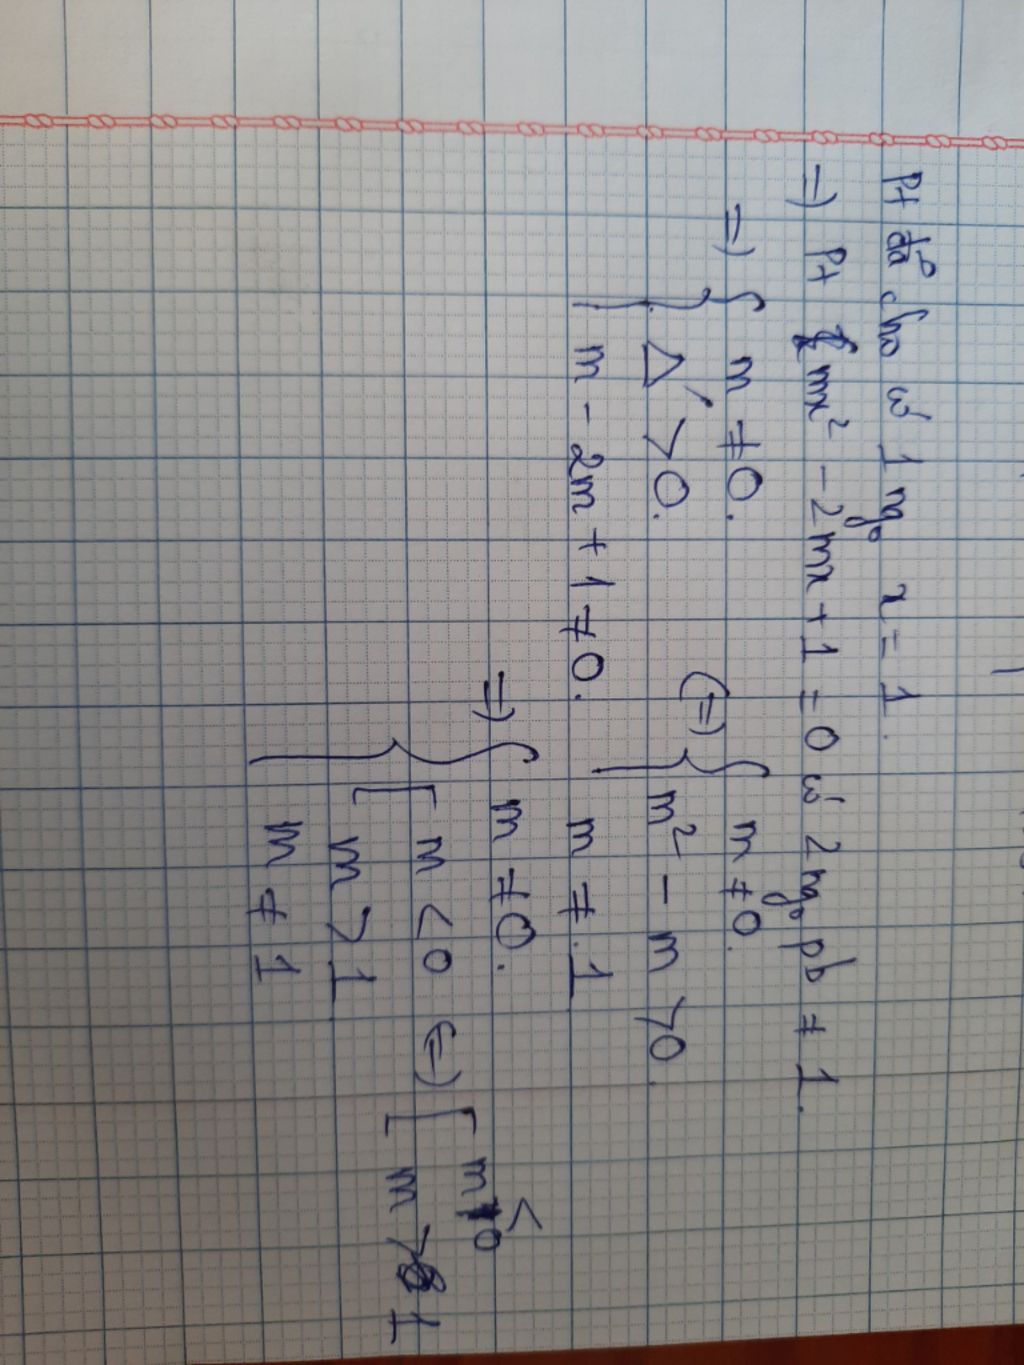 Pt đã cho có 1 ng₀ x = 1.
=) Pt mx² - 2mx + 1 = 0 có 2 ng₀ pb ≠ 1.
=) { m ≠ 0.
Δ' > 0.
m - 2m + 1 ≠ 0.
(=) { m ≠ 0.
m² - m > 0.
m ≠ 1
=) { m ≠ 0.
[ m < 0
m > 1
m ≠ 1
(=) [ m < 0
m > 1